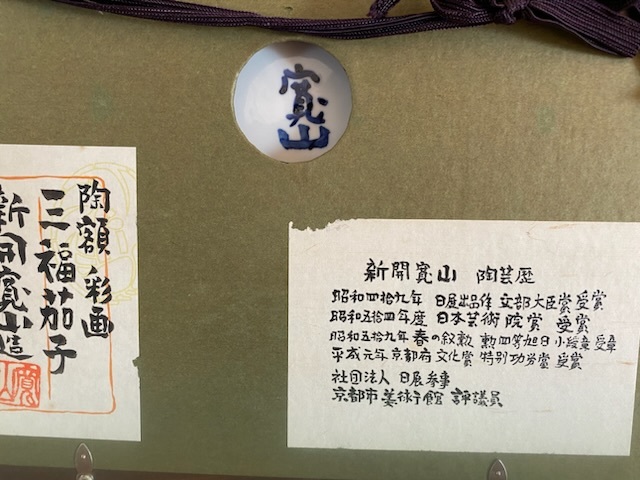 寛山
陶額 彩画
三福茄子
新開寛山造
新開寛山 陶芸歴
昭和四拾九年 日展出品作 文部大臣賞 受賞
昭和五拾四年度 日本芸術院賞 受賞
昭和五拾九年 春の叙勲 勲四等旭日小綬章 受章
平成元年 京都府文化賞 特別功労賞 受賞
社団法人 日展参事
京都市美術館 評議員